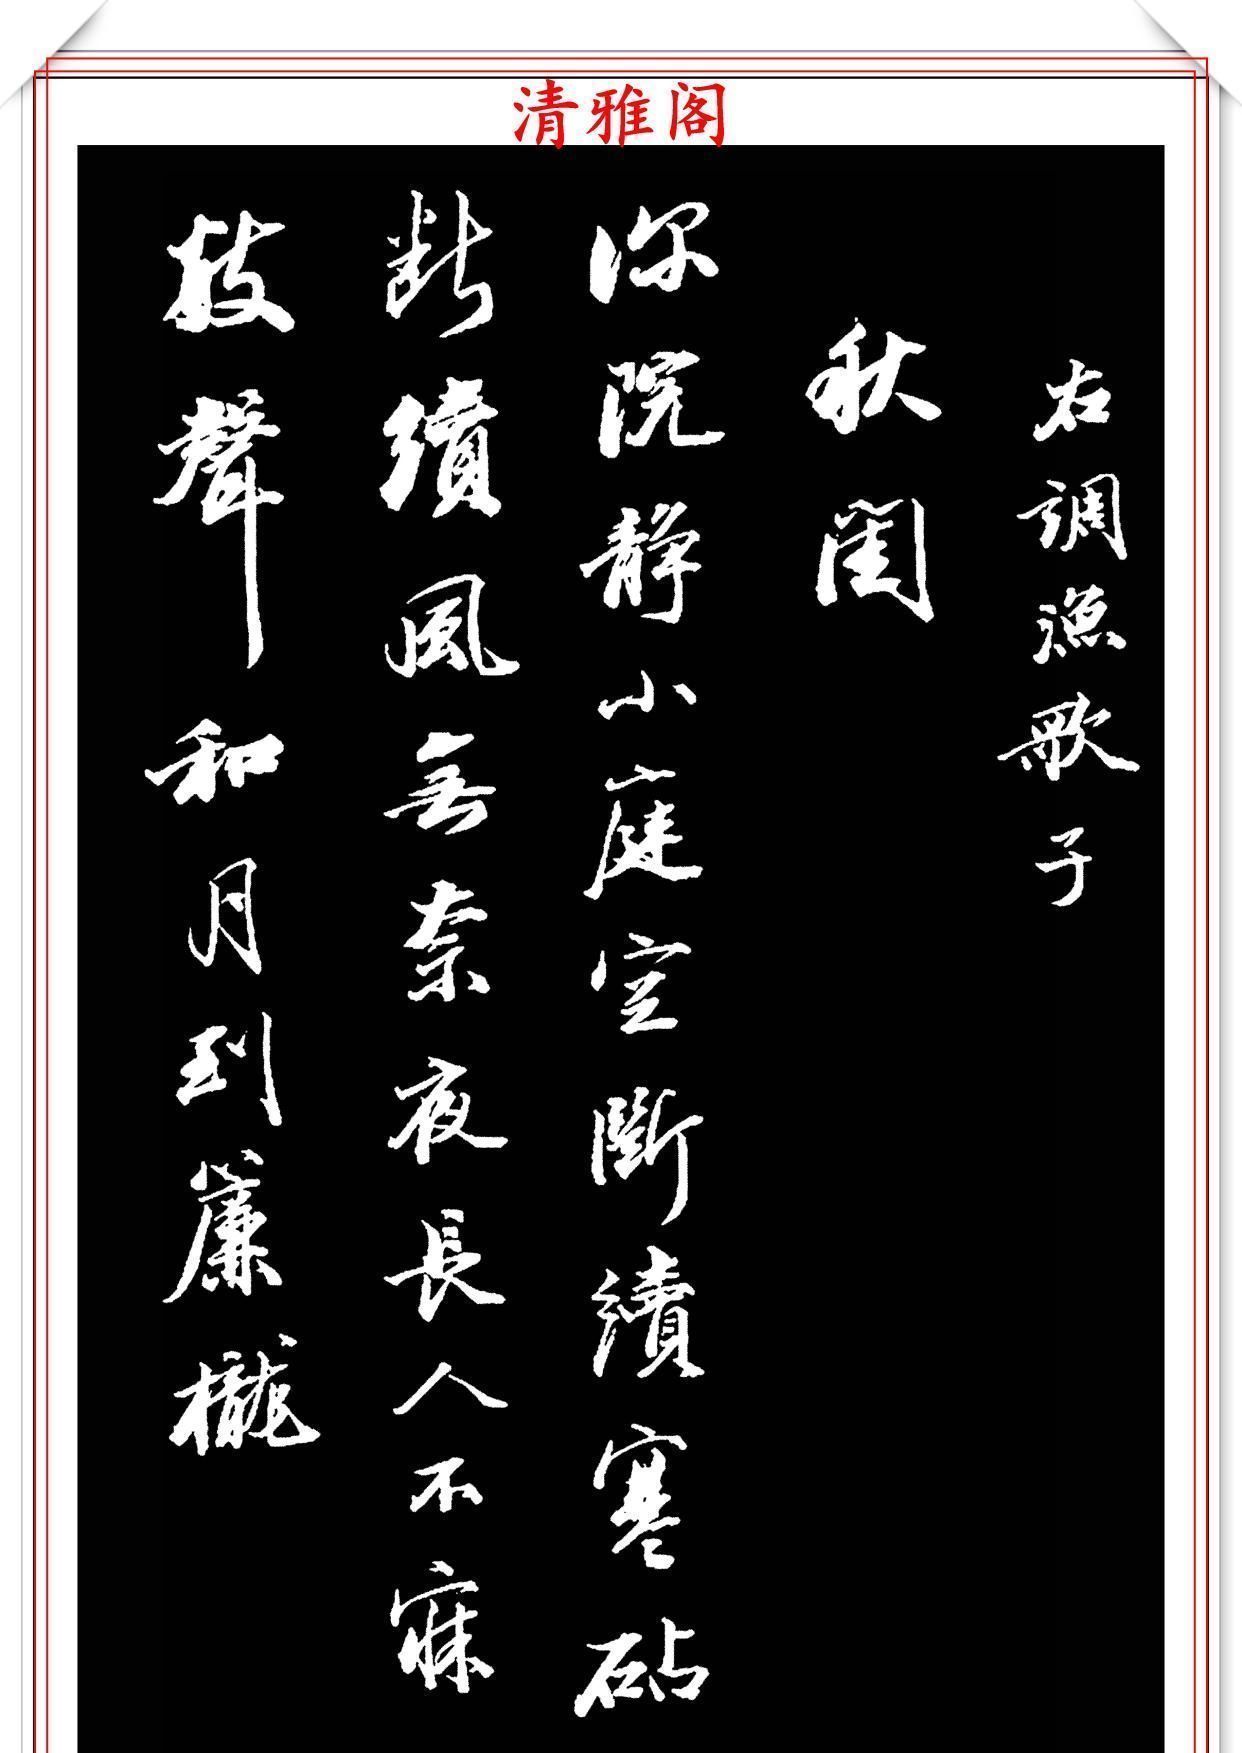 清雅阁
右調漁歌子
秋閨
深院静小庭空斷續寒砧
斷續風無奈夜長人不寐
數聲和月到簾櫳